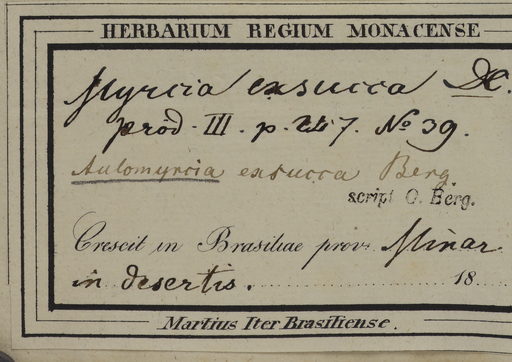 HERBARIUM REGIUM MONACENSE
Myrcia exsucca DC.
prod. III. p. 247. No 39.
Aulomyrcia exsucca Berg
script O. Berg.
Crescit in Brasiliae prov. Minar
in desertis. 18
Martius Iter Brasiliense.